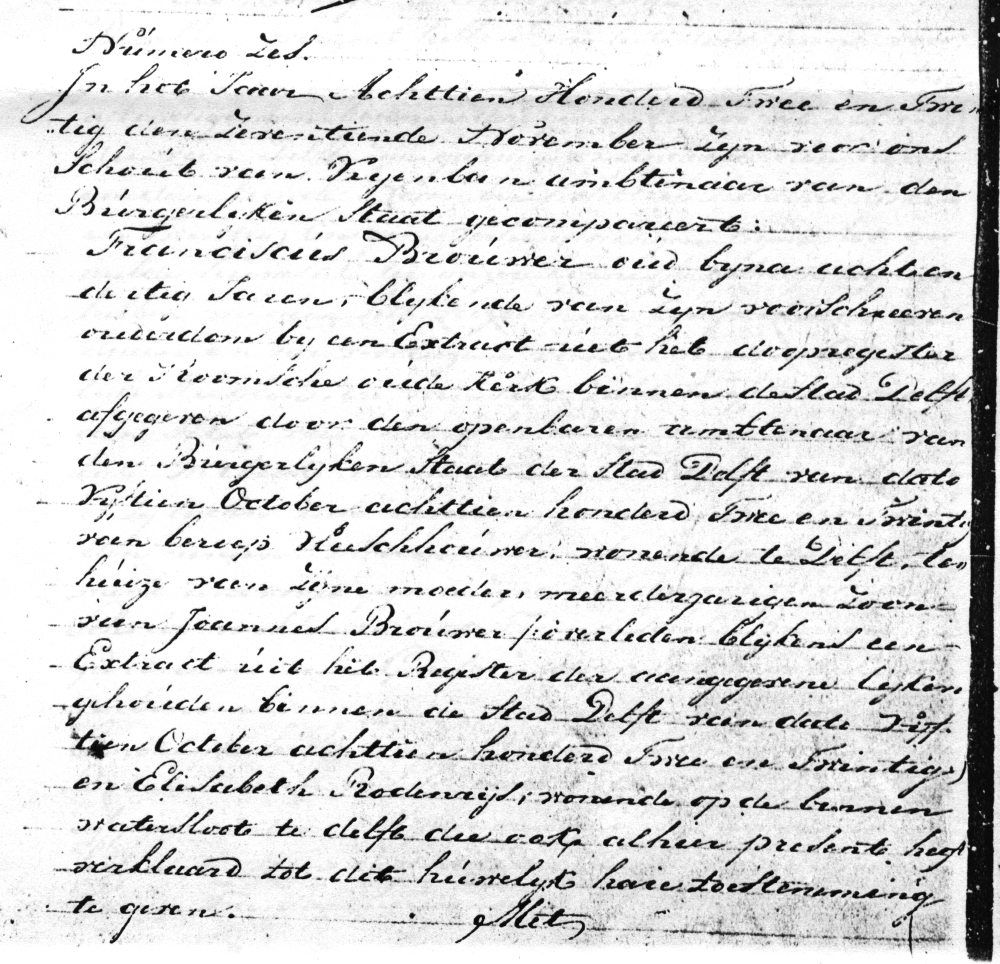 Número Zes.
In het Jaar Achttien Honderd Twee en Twin
tig den Zeventiende November zyn voor ons
Schout van Vryenban ambtenaar van den
Burgerleken Staat gecompareert:
Franciscus Brouwer oud byna acht en
dertig Jaren, blykende van zyn voorschreeven
ouderdom by een Extract uit het doopregister
der Roomsche oude kerk binnen de Stad Delft
afgegeven door den openbaren ambtenaar van
den Burgerlyken Staat der Stad Delft van dato
Vyftien October achttien honderd Twee en Twintig
van beroep Vleeschhouwer, wonende te Delft, ten
huize van Zyne moeder, meerderjarigen Zoon
van Joannes Brouwer /:overleden blykens een
Extract uit het Register der aangegevene lyken
gehouden binnen de Stad Delft van date Vyf
tien October achttien honderd Twee en Twintig:)
en Elisabeth Rodenrijs, wonende op de binnen
watersloot te delft die ook alhier present heeft
verklaard tot dit huwelyk hare toestemming
te geven. Met